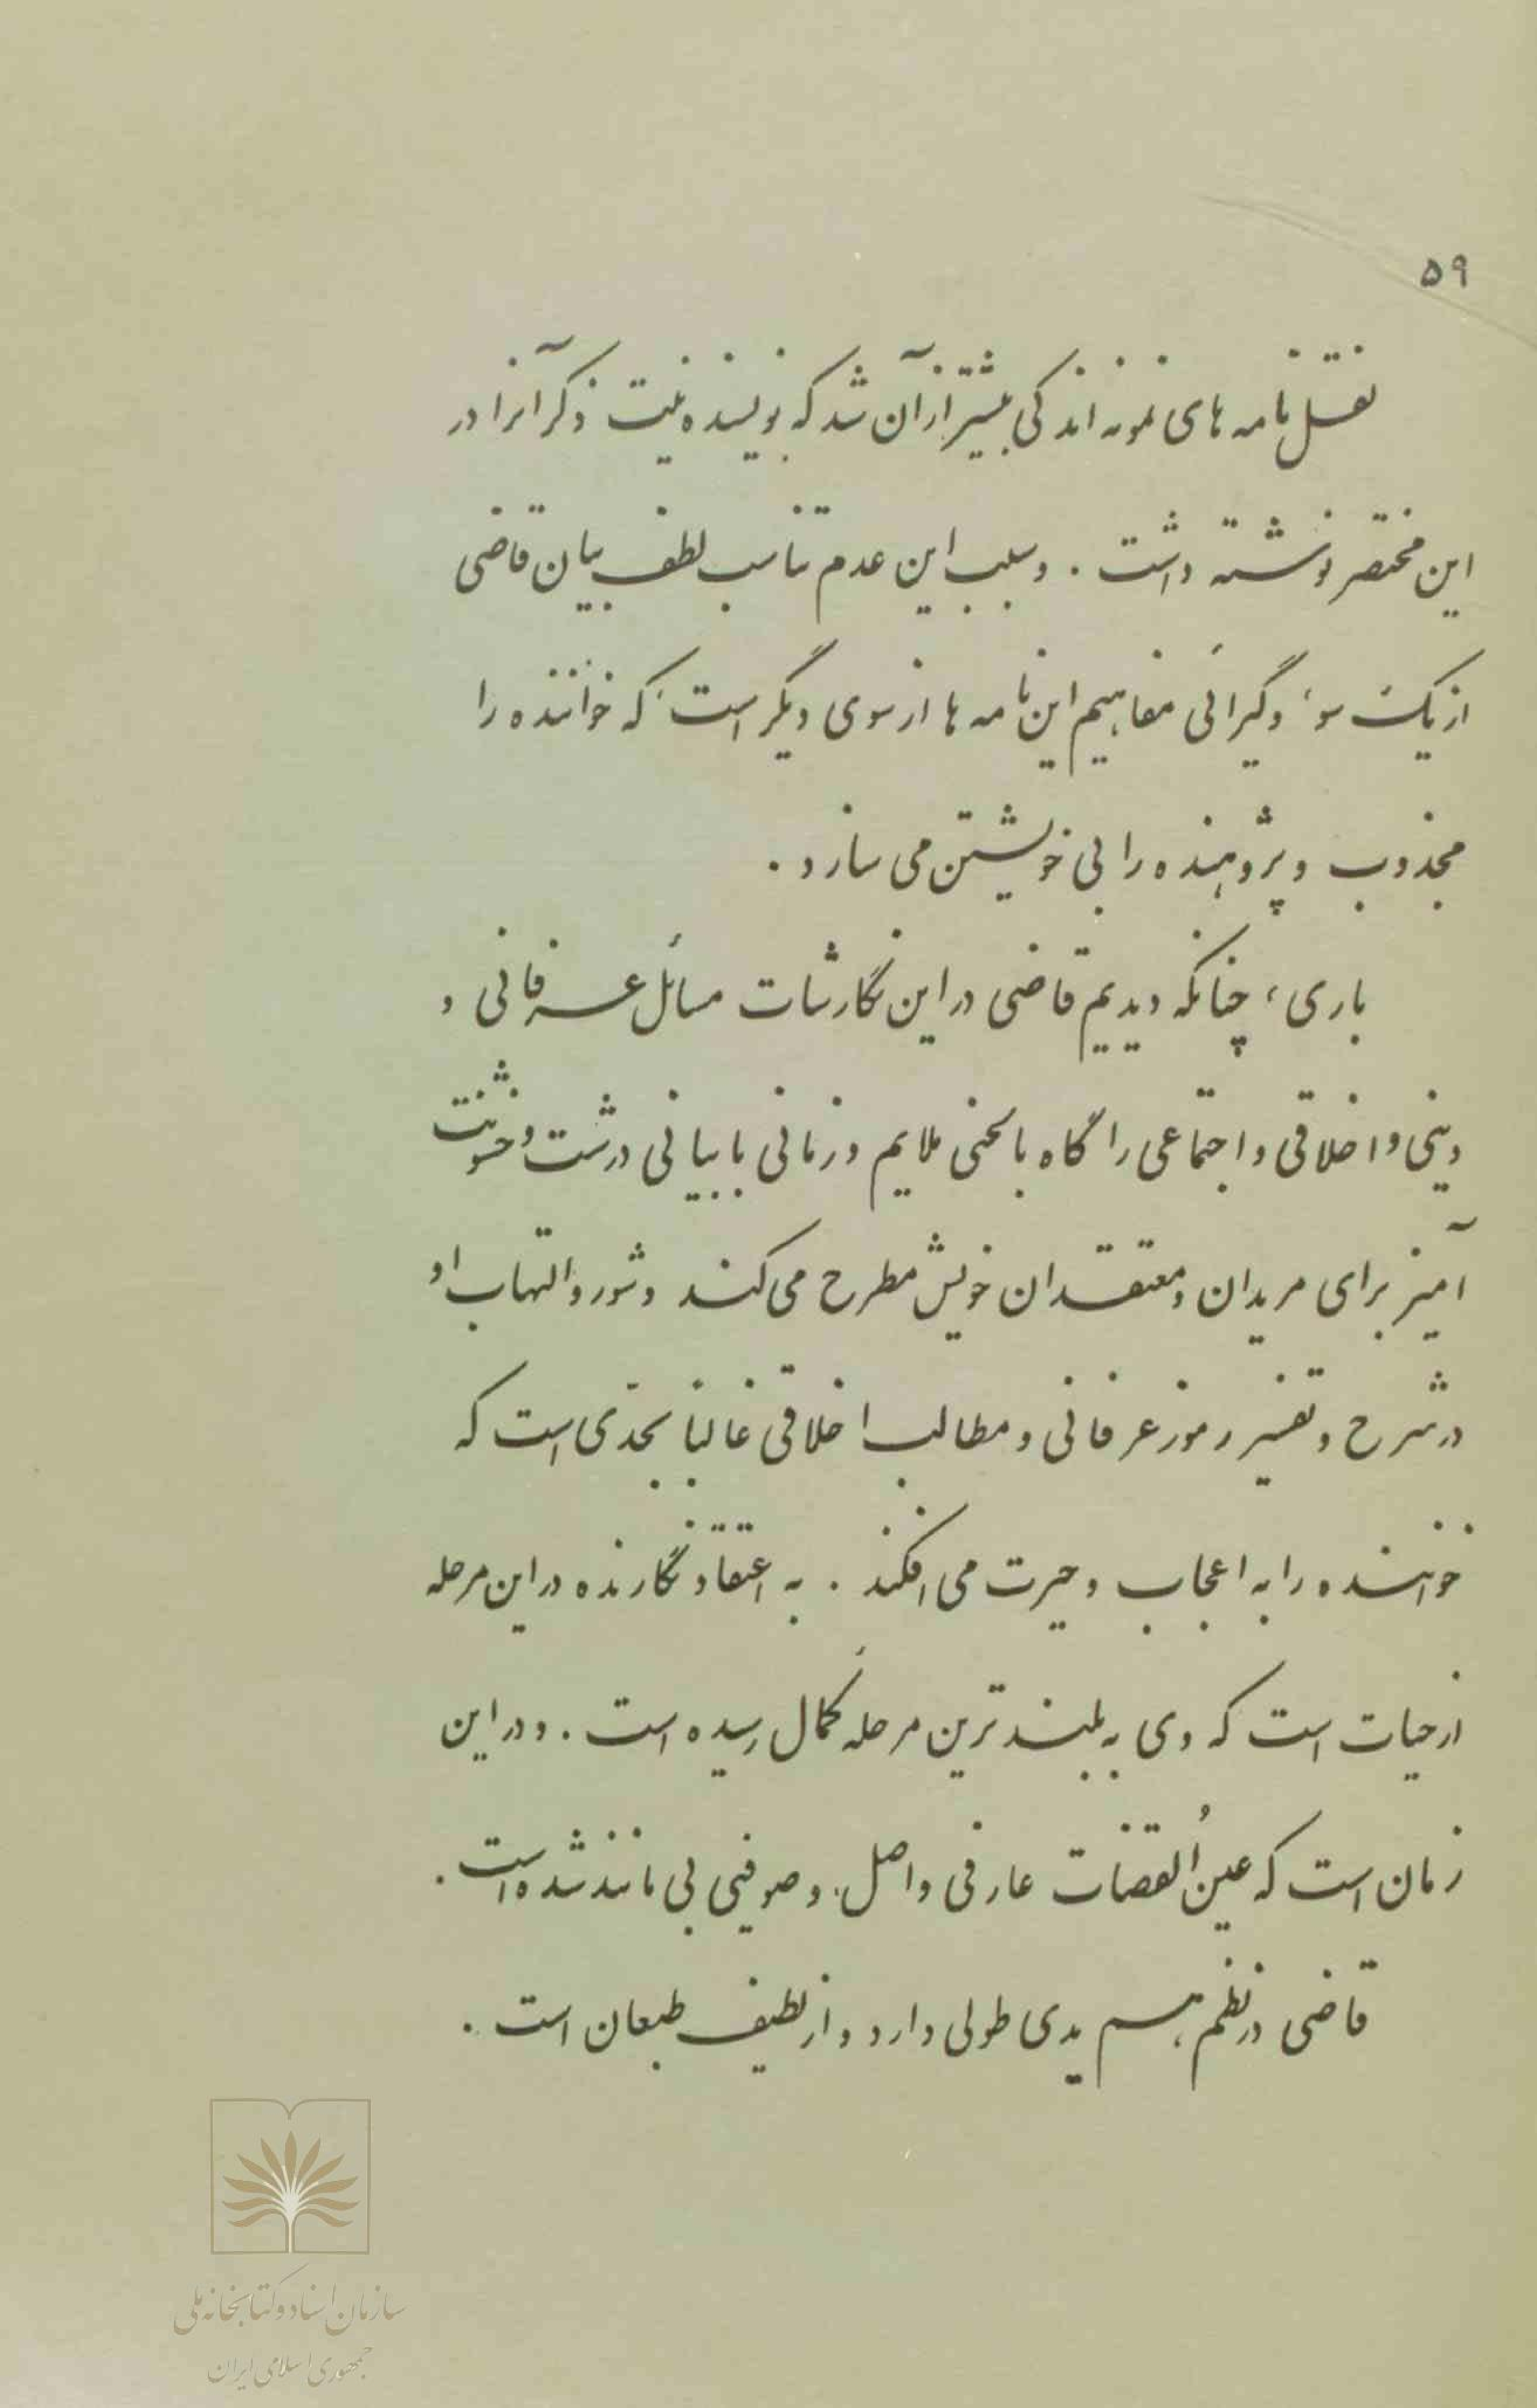 ۵۹
نقل نامه های نمونه اندکی بیشتر از آن شد که نویسنده نیت ذکر آنرا در
این مختصر نوشته داشت . و سبب این عدم تناسب لطف بیان قاضی
از یک سو، و گیرائی مفاهیم این نامه ها از سوی دیگر است، که خواننده را
مجذوب و پژوهنده را بی خویشتن می سازد .
باری، چنانکه دیدیم قاضی در این نگارشات مسائل عرفانی و
دینی و اخلاقی و اجتماعی را گاه با لحنی ملایم و زمانی با بیانی درشت و خشونت
آمیز برای مریدان و معتقدان خویش مطرح می کند و شور و التهاب او
در شرح و تفسیر رموز عرفانی و مطالب اخلاقی غالباً بحدّی است که
خواننده را به اعجاب و حیرت می افکند . به اعتقاد نگارنده در این مرحله
از حیات است که وی به بلندترین مرحله کمال رسیده است . و در این
زمان است که عینُ القضات عارفی واصل، و صوفیی بی مانند شده است .
قاضی در نظم هم یدی طولی دارد و از لطیف طبعان است .
سازمان اسناد و کتابخانه ملی
جمهوری اسلامی ایران